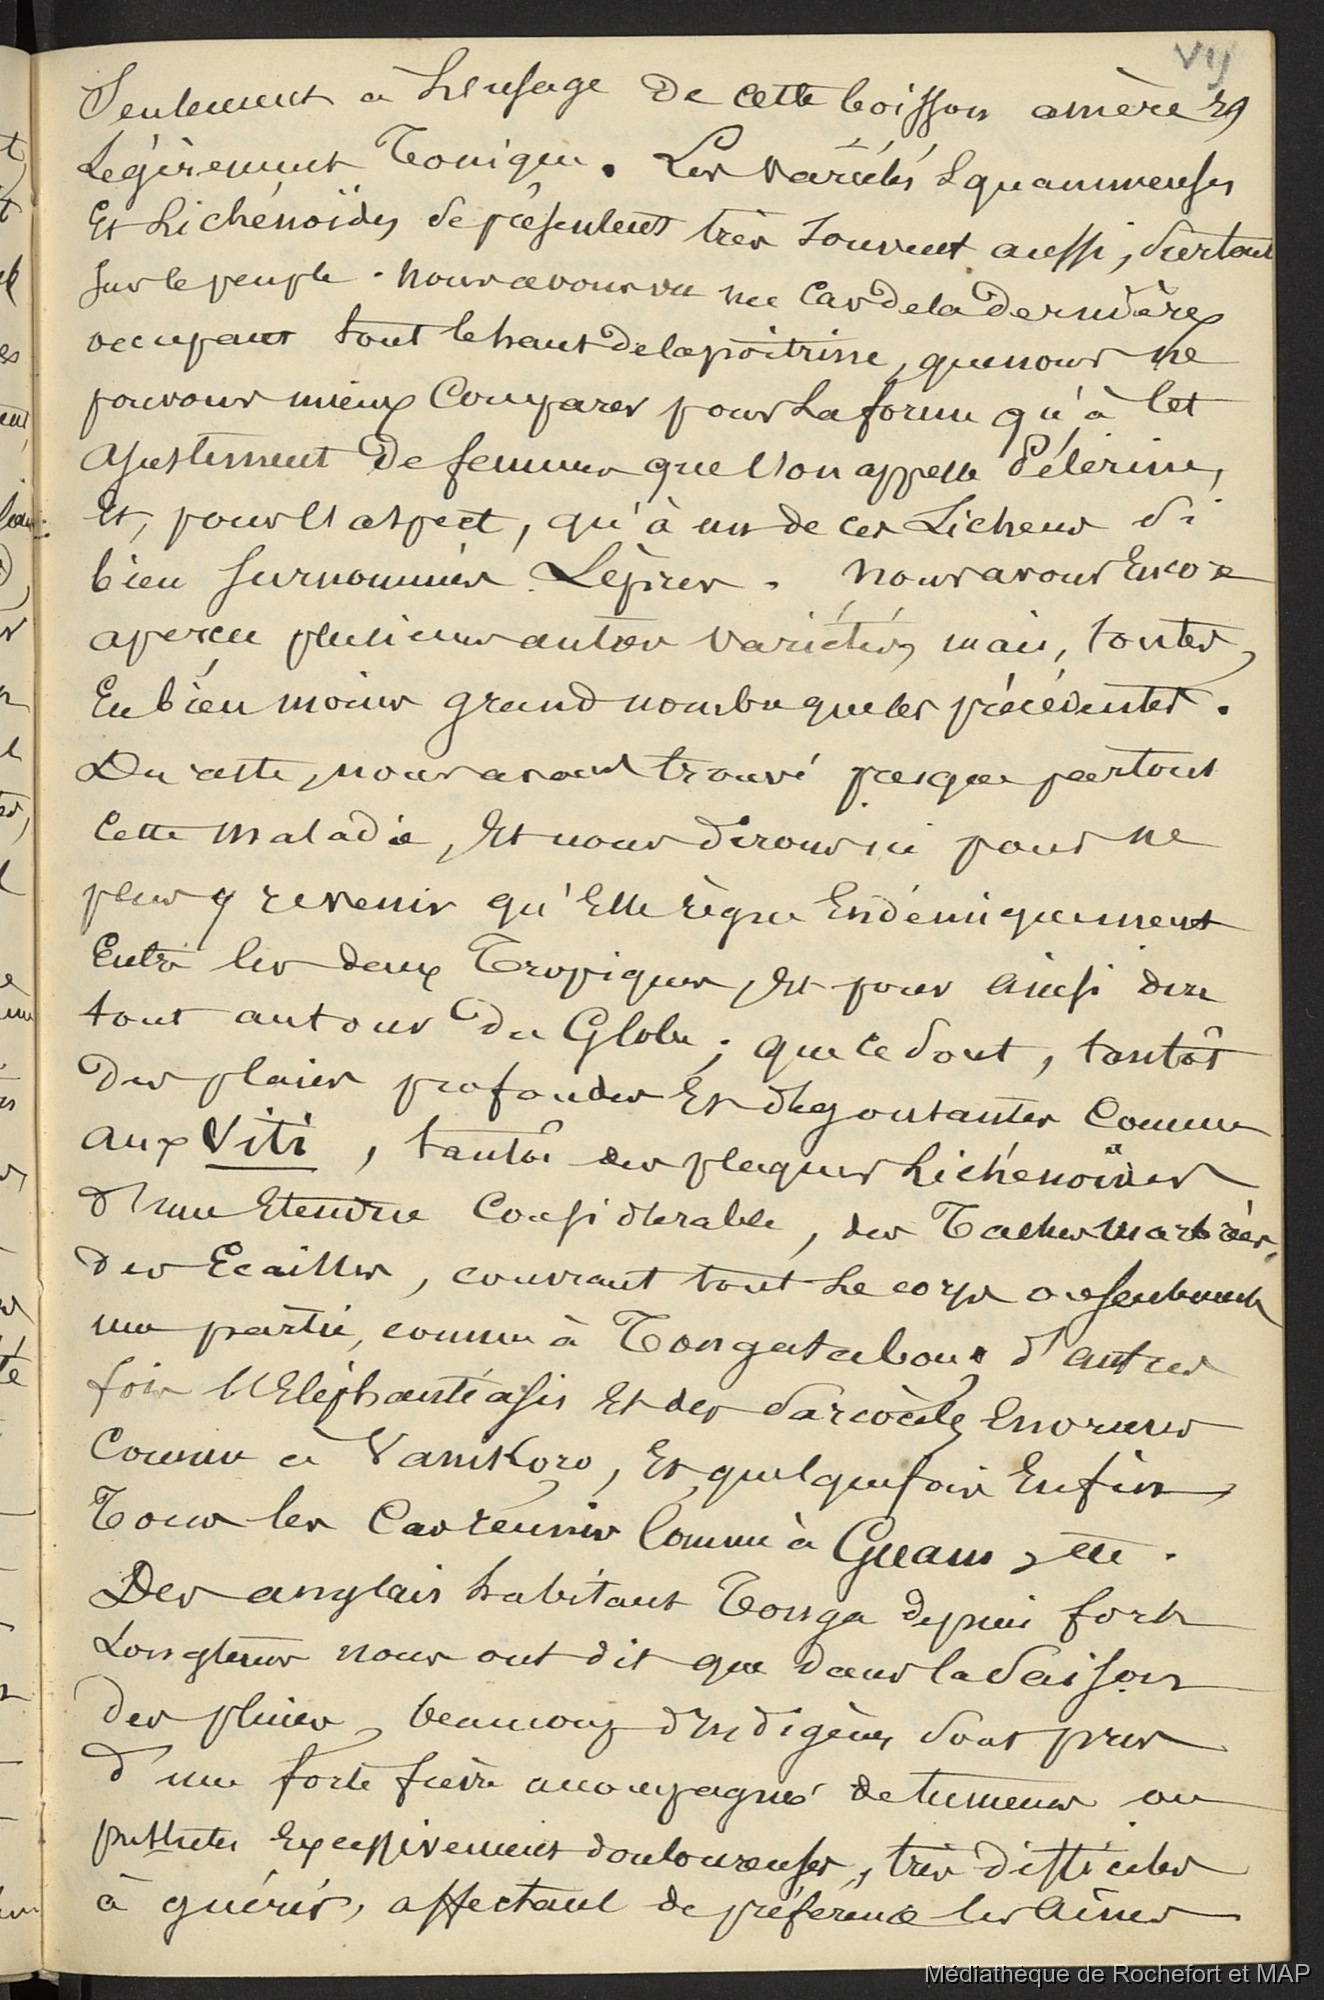 VIJ
Seulement à l'usage de cette boisson amère et
Légèrement Tonique. Les variétés squammeuses
Et Lichénoïdes se présentent très souvent aussi, surtout
sur le peuple. nous avons vu un cas de la dernière
occupant tout le haut de la poitrine, que nous ne
pouvons mieux Comparer pour La forme qu'à cet
ajustement De femmes que l'on appelle Pélerine,
Et, pour l'aspect, qu'à un de ces Lichens si
bien surnommés Lèpres. Nous avons Encore
aperçu plusieurs autres variétés, mais, toutes,
En bien moins grand nombre que les précédentes.
Du reste, nous avons trouvé presque partout
Cette maladie, Et nous dirons ici pour ne
plus y revenir qu'Elle règne Endémiquement
Entre les deux Tropiques, Et pour Ainsi dire
tout autour Du Globe; que ce sont, tantôt
Des plaies profondes Et dégoutantes Comme
aux Viti, tantôt des plaques Lichénoïdes
d'une Etendue Considérable, des Taches marbrées,
Des Ecailles, couvrant tout Le corps ou seulement
une partie, comme à Tongatabou, d'autres
fois l'Eléphantiasis Et des sarcocèles Enormes
Comme à Vanikoro, Et quelquefois Enfin,
Tous les Cas réunis Comme à Guam, etc.
Des anglais habitant Tonga depuis fort
Longtems nous ont dit que dans la saison
Des pluies, beaucoup d'Indigènes sont pris
d'une forte fièvre accompagnée de tumeurs ou
pustules Excessivement douloureuses, très difficiles
à guérir, affectant de préférence les Aînes
Médiathèque de Rochefort et MAP